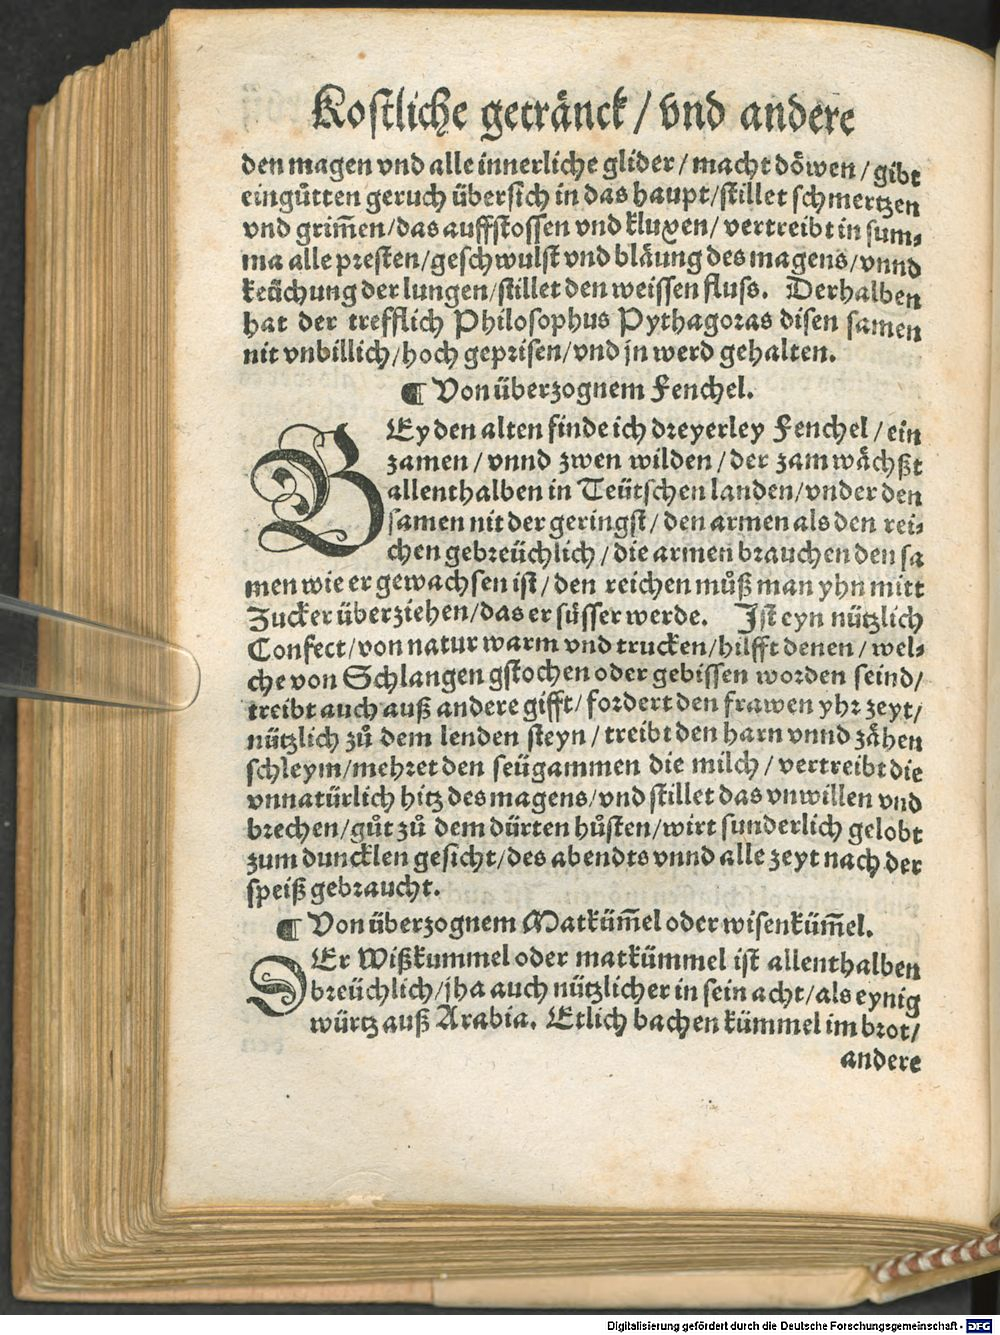 Kostliche getränck / vnd andere
den magen vnd alle innerliche glider / macht döwen / gibt
eingůtten geruch übersich in das haupt / stillet schmertzen
vnd grim̄en / das auffstossen vnd kluxen / vertreibt in sum⸗
ma alle presten / geschwulst vnd bläung des magens / vnnd
keüchung der lungen / stillet den weissen fluss. Derhalben
hat der trefflich Philosophus Pythagoras disen samen
nit vnbillich / hoch geprisen / vnd jn werd gehalten.
¶ Von überzognem Fenchel.
BEy den alten finde ich dreyerley Fenchel / ein
zamen / vnnd zwen wilden / der zam wächßt
allenthalben in Teütschen landen / vnder den
samen nit der geringst / den armen als den rei⸗
chen gebreüchlich / die armen brauchen den sa
men wie er gewachsen ist / den reichen můß man yhn mitt
Zucker überziehen / das er süsser werde. Ist eyn nützlich
Confect / von natur warm vnd trucken / hilfft denen / wel⸗
che von Schlangen gstochen oder gebissen worden seind /
treibt auch auß andere gifft / fordert den frawen yhr zeyt /
nützlich zů dem lenden steyn / treibt den harn vnnd zähen
schleym / mehret den seügammen die milch / vertreibt die
vnnatürlich hitz des magens / vnd stillet das vnwillen vnd
brechen / gůt zů dem dürten hůsten / wirt sunderlich gelobt
zum duncklen gesicht / des abendts vnnd alle zeyt nach der
speiß gebraucht.
¶ Von überzognem Matküm̄el oder wisenküm̄el.
DEr Wißkummel oder matkümmel ist allenthalben
breüchlich / jha auch nützlicher in sein acht / als eynig
würtz auß Arabia. Etlich bachen kümmel im brot /
andere
Digitalisierung gefördert durch die Deutsche Forschungsgemeinschaft - DFG